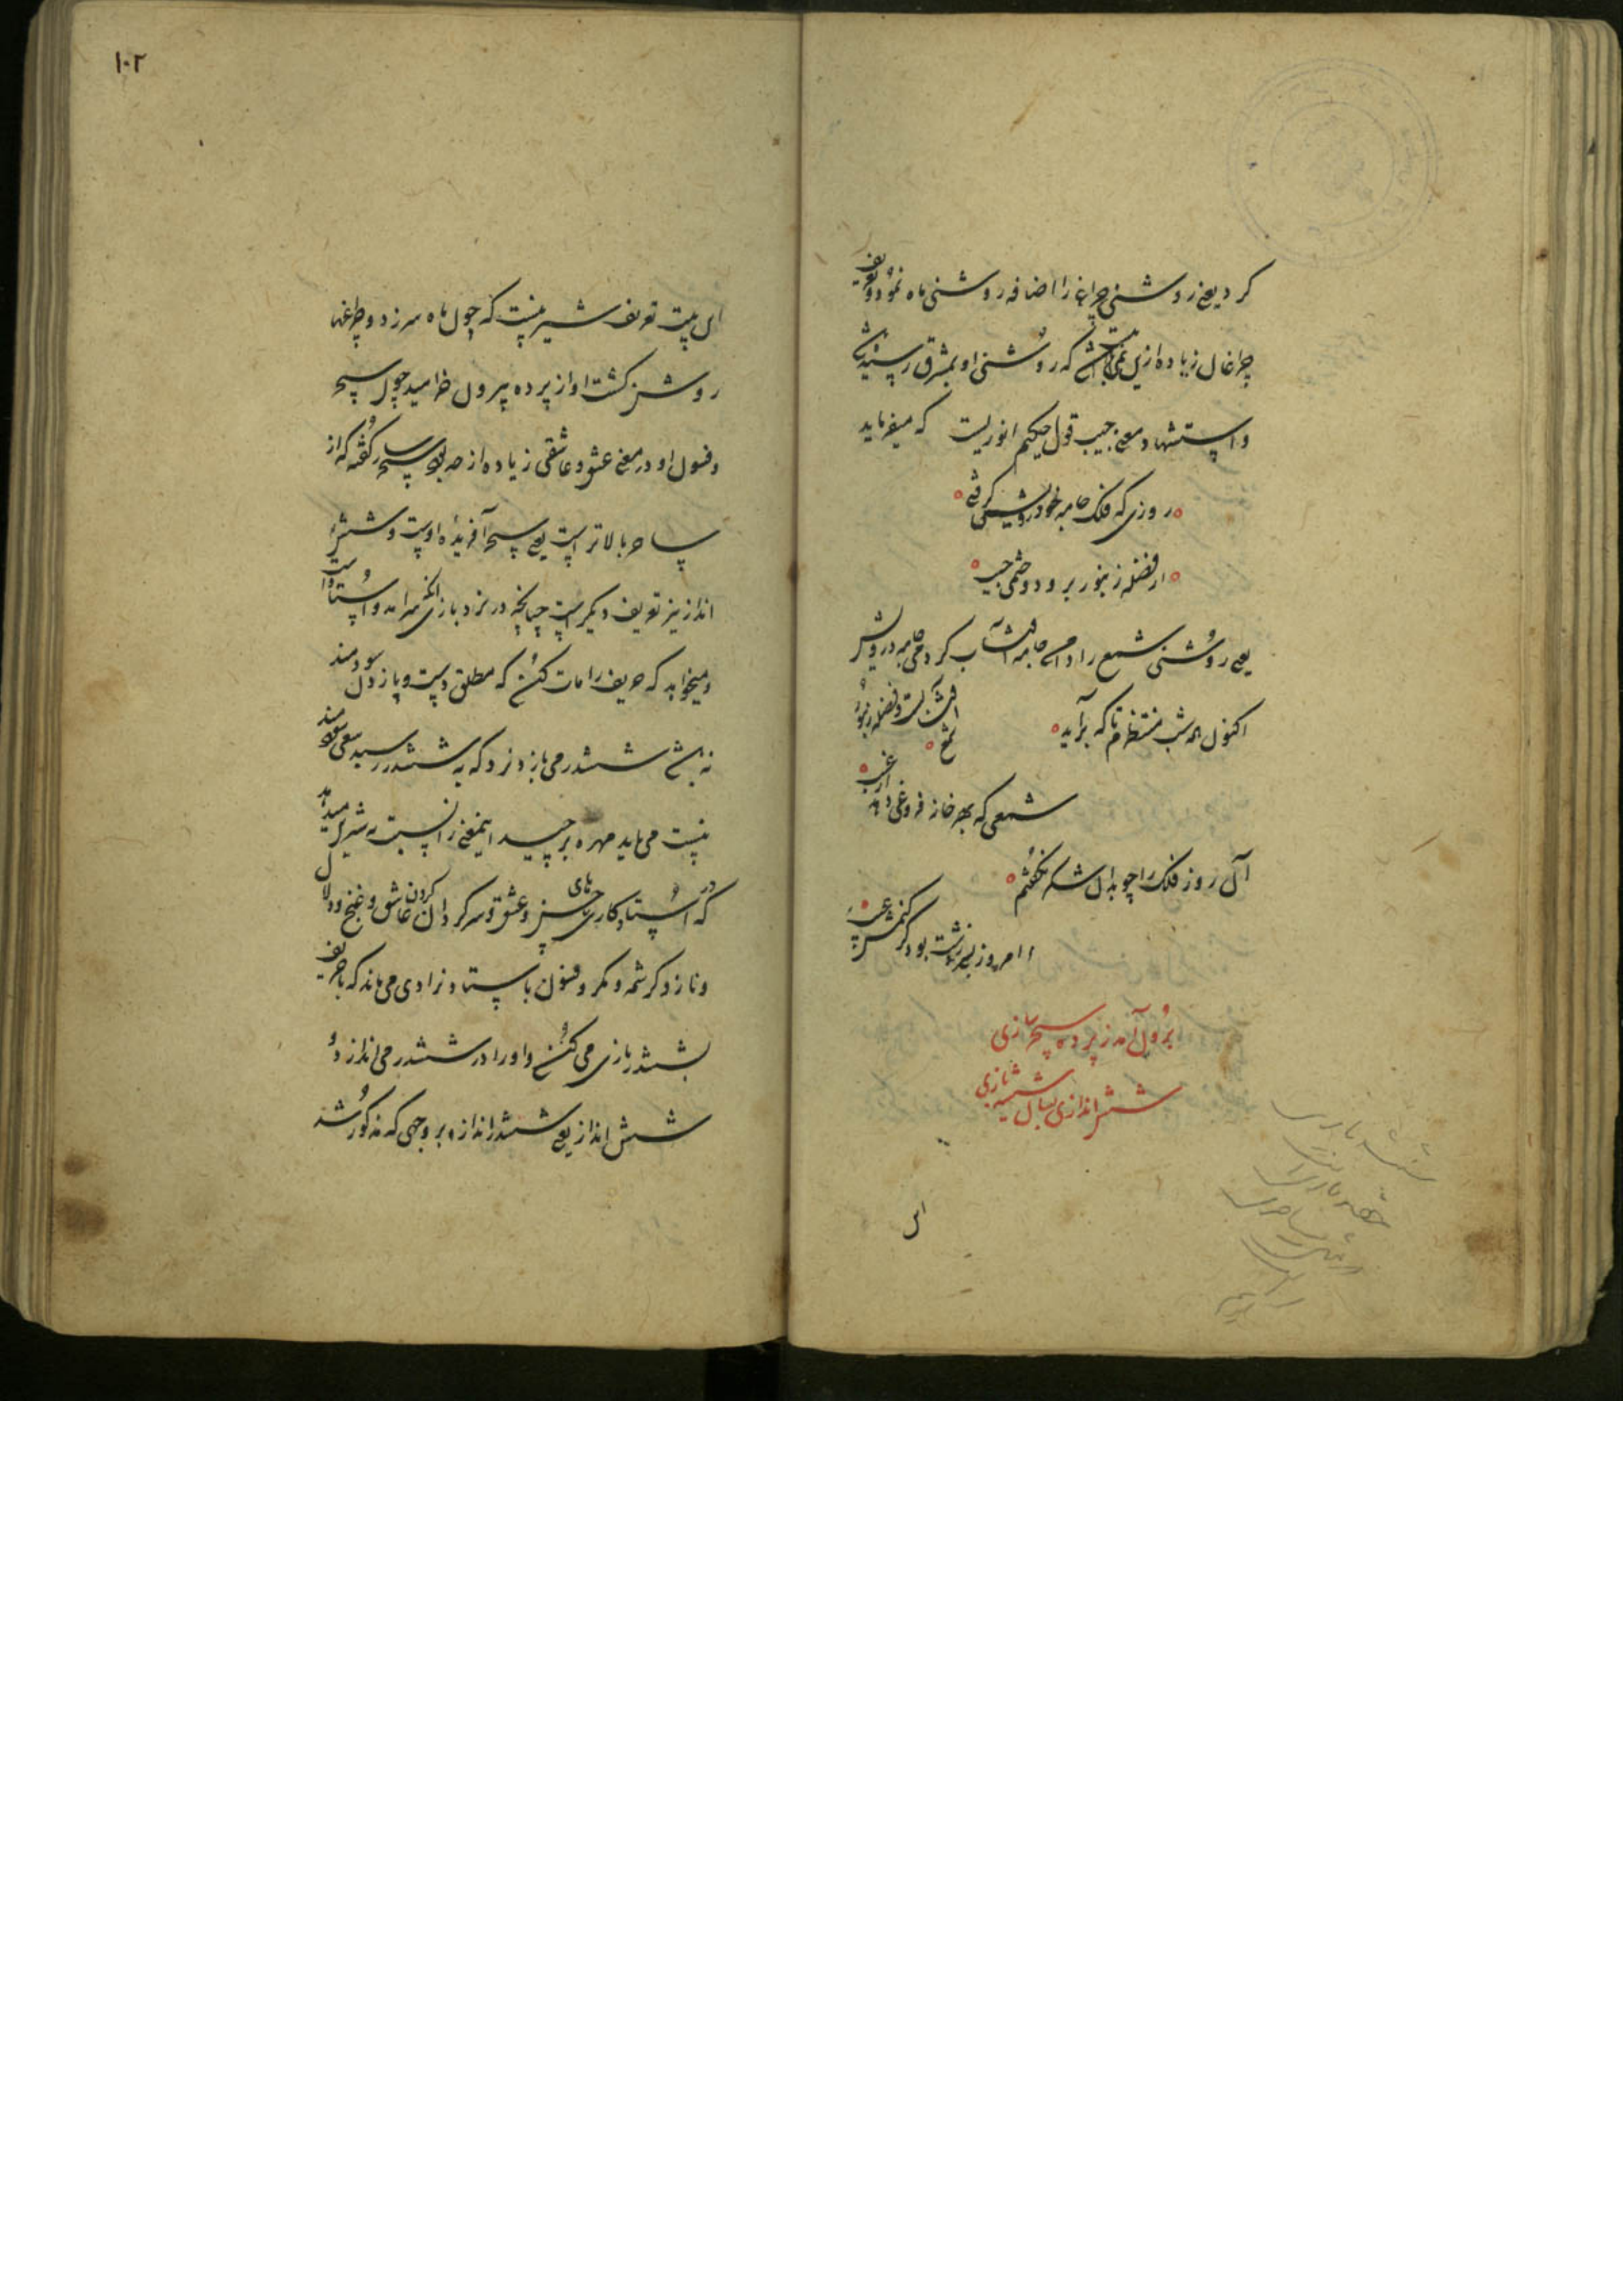 کرد یعنے روشنی چراغ را اضافه روشنی ماه نمود و تعریف
چراغان زیاده ازین نمی باشد که روشنی او بمشرق رسیده
و استشهاد معنے جیب قول حکیم انوریست که میفرماید
روزی که فلک جامه خود درویشی گرفتی
از فضله زنبور برو دوختمی جیب
یعے روشنی شمع را دامے جامه آفتاب کردمی جامه درویش
اکنون همه شب منتظرم تا که برآید
آفتابست و فضله زنبور شمع
شمعی که بهر خانه فروغی دهد از غیب
آن روز فلک را چو بدان شکر نگفتم
امروز زشت بود گر کنمش عیب
برون آمد ز پرده سحر سازی
شش اندازی بسان شیشه بازی
این
۱۰۲
این بیت تعریف شیرینست که چون ماه سر زد و چراغها
روشن گشت او از پرده بیرون خرامید چون سحر
و فسون او در معنے عشق و عاشقی زیاده از حد بود سحر ساز گفته که از
ساحر بالاتر است یعے سحر آفریده اوست و شش
انداز نیز تعریف دیگر است چنانچه در نرد بازی آنکه سرآمد و استاد است
و میخواهد که حریف را مات کند که مطلق دست و پا زدن سودمند
نباشد ششدر می بازد نرد که به ششدر رسید سعی سودمند
نیست می باید مهره برچید اینمعنے را نسبت به شیرین میدهد
که در استادکاری های حسن و عشق و سرگردان کردن عاشق و غنج و دلال
و ناز و کرشمه و مکر و فسون باستاد نرادی می ماند که با حریف
ششدر بازی می کند و او را در ششدر می اندازد و
شش انداز یعے ششدر انداز و بر وجهی که مذکور شد